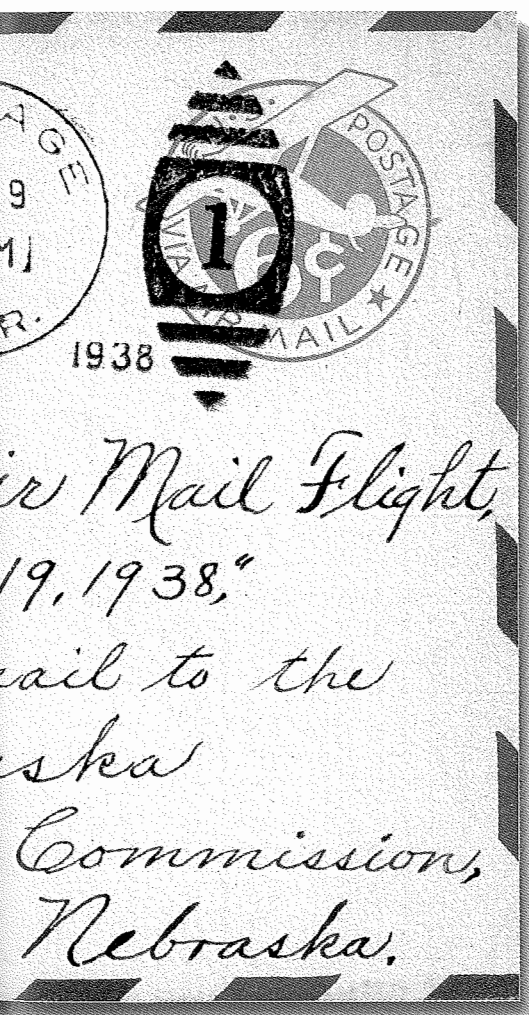 AGE
9
M
R.
1938
1
POSTAGE
VIA AIR MAIL
6¢
ir Mail Flight,
19, 1938,"
ail to the
ska
Commission,
Nebraska.